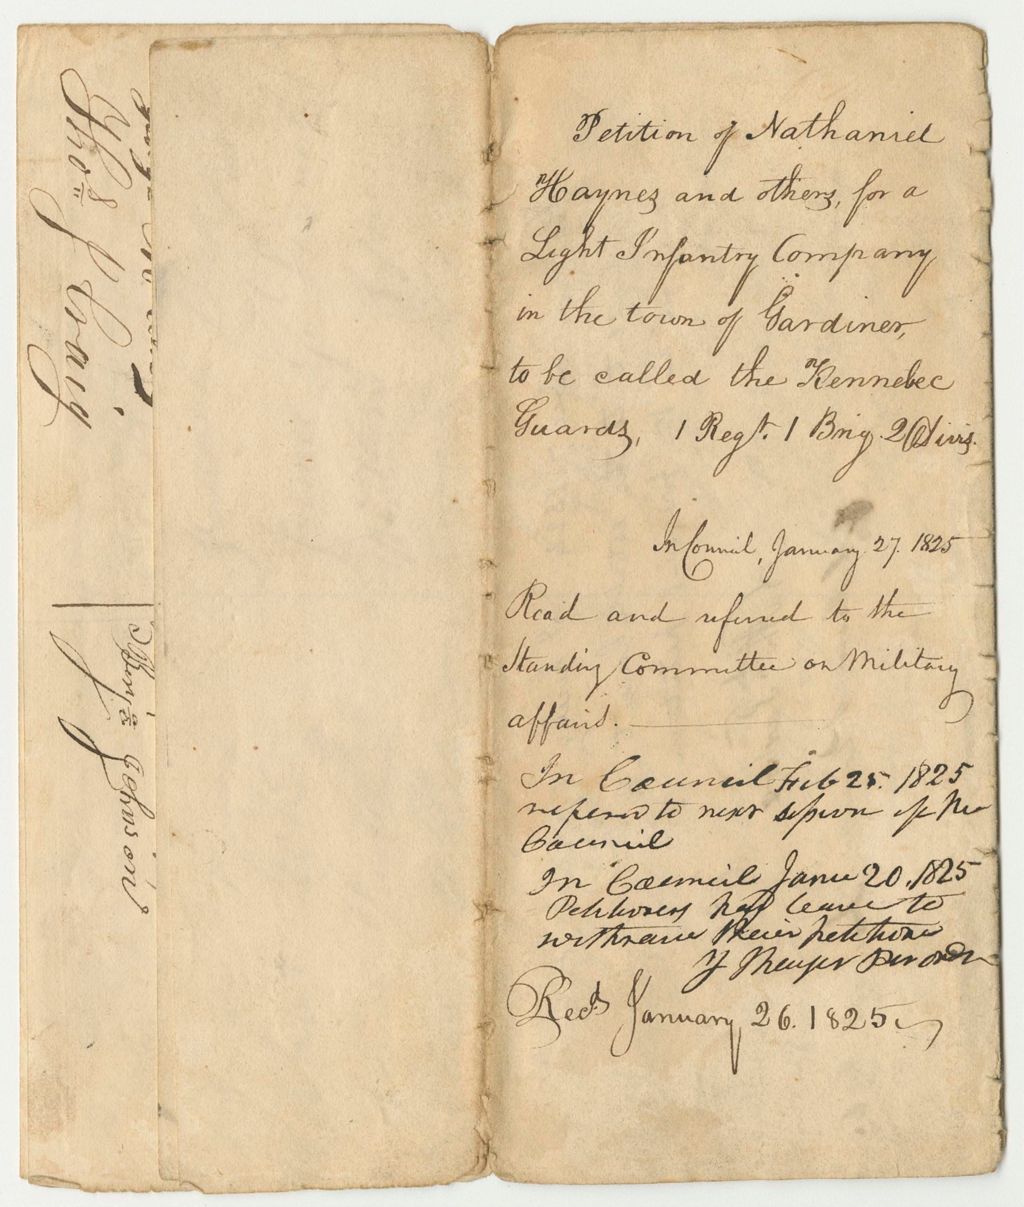 Petition of Nathaniel
Haynes and others, for a
Light Infantry Company
in the town of Gardiner,
to be called the Kennebec
Guards, 1 Regt. 1 Brig. 2 Divis.
In Council, January 27. 1825
Read and referred to the
Standing Committee on Military
affairs.
In Council Feb 25. 1825
referred to next session of the
Council
In Council June 20, 1825
Petitioners had leave to
withdraw their petition
pr order
Recd January 26. 1825
Thos
Craig
Johnson